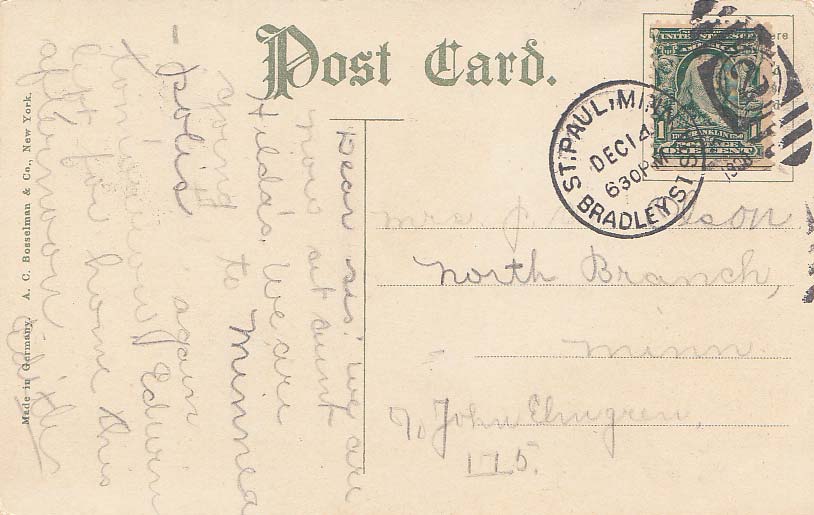 Post Card.
UNITED STATES OF AMERICA
1
1
FRANKLIN
ONE CENT
ST. PAUL, MINN.
DEC 14
630PM
1908
BRADLEY ST. STA.
2
Mrs. J.
North Branch,
Minn.
c/o John Elmgren,
175.
Dear sis! We are
now at aunt
Hilda's. We are
going to Minnea
-polis again
tomorrow. Edwin
left for home this
afternoon.
Made in Germany. A. C. Bosselman & Co., New York.